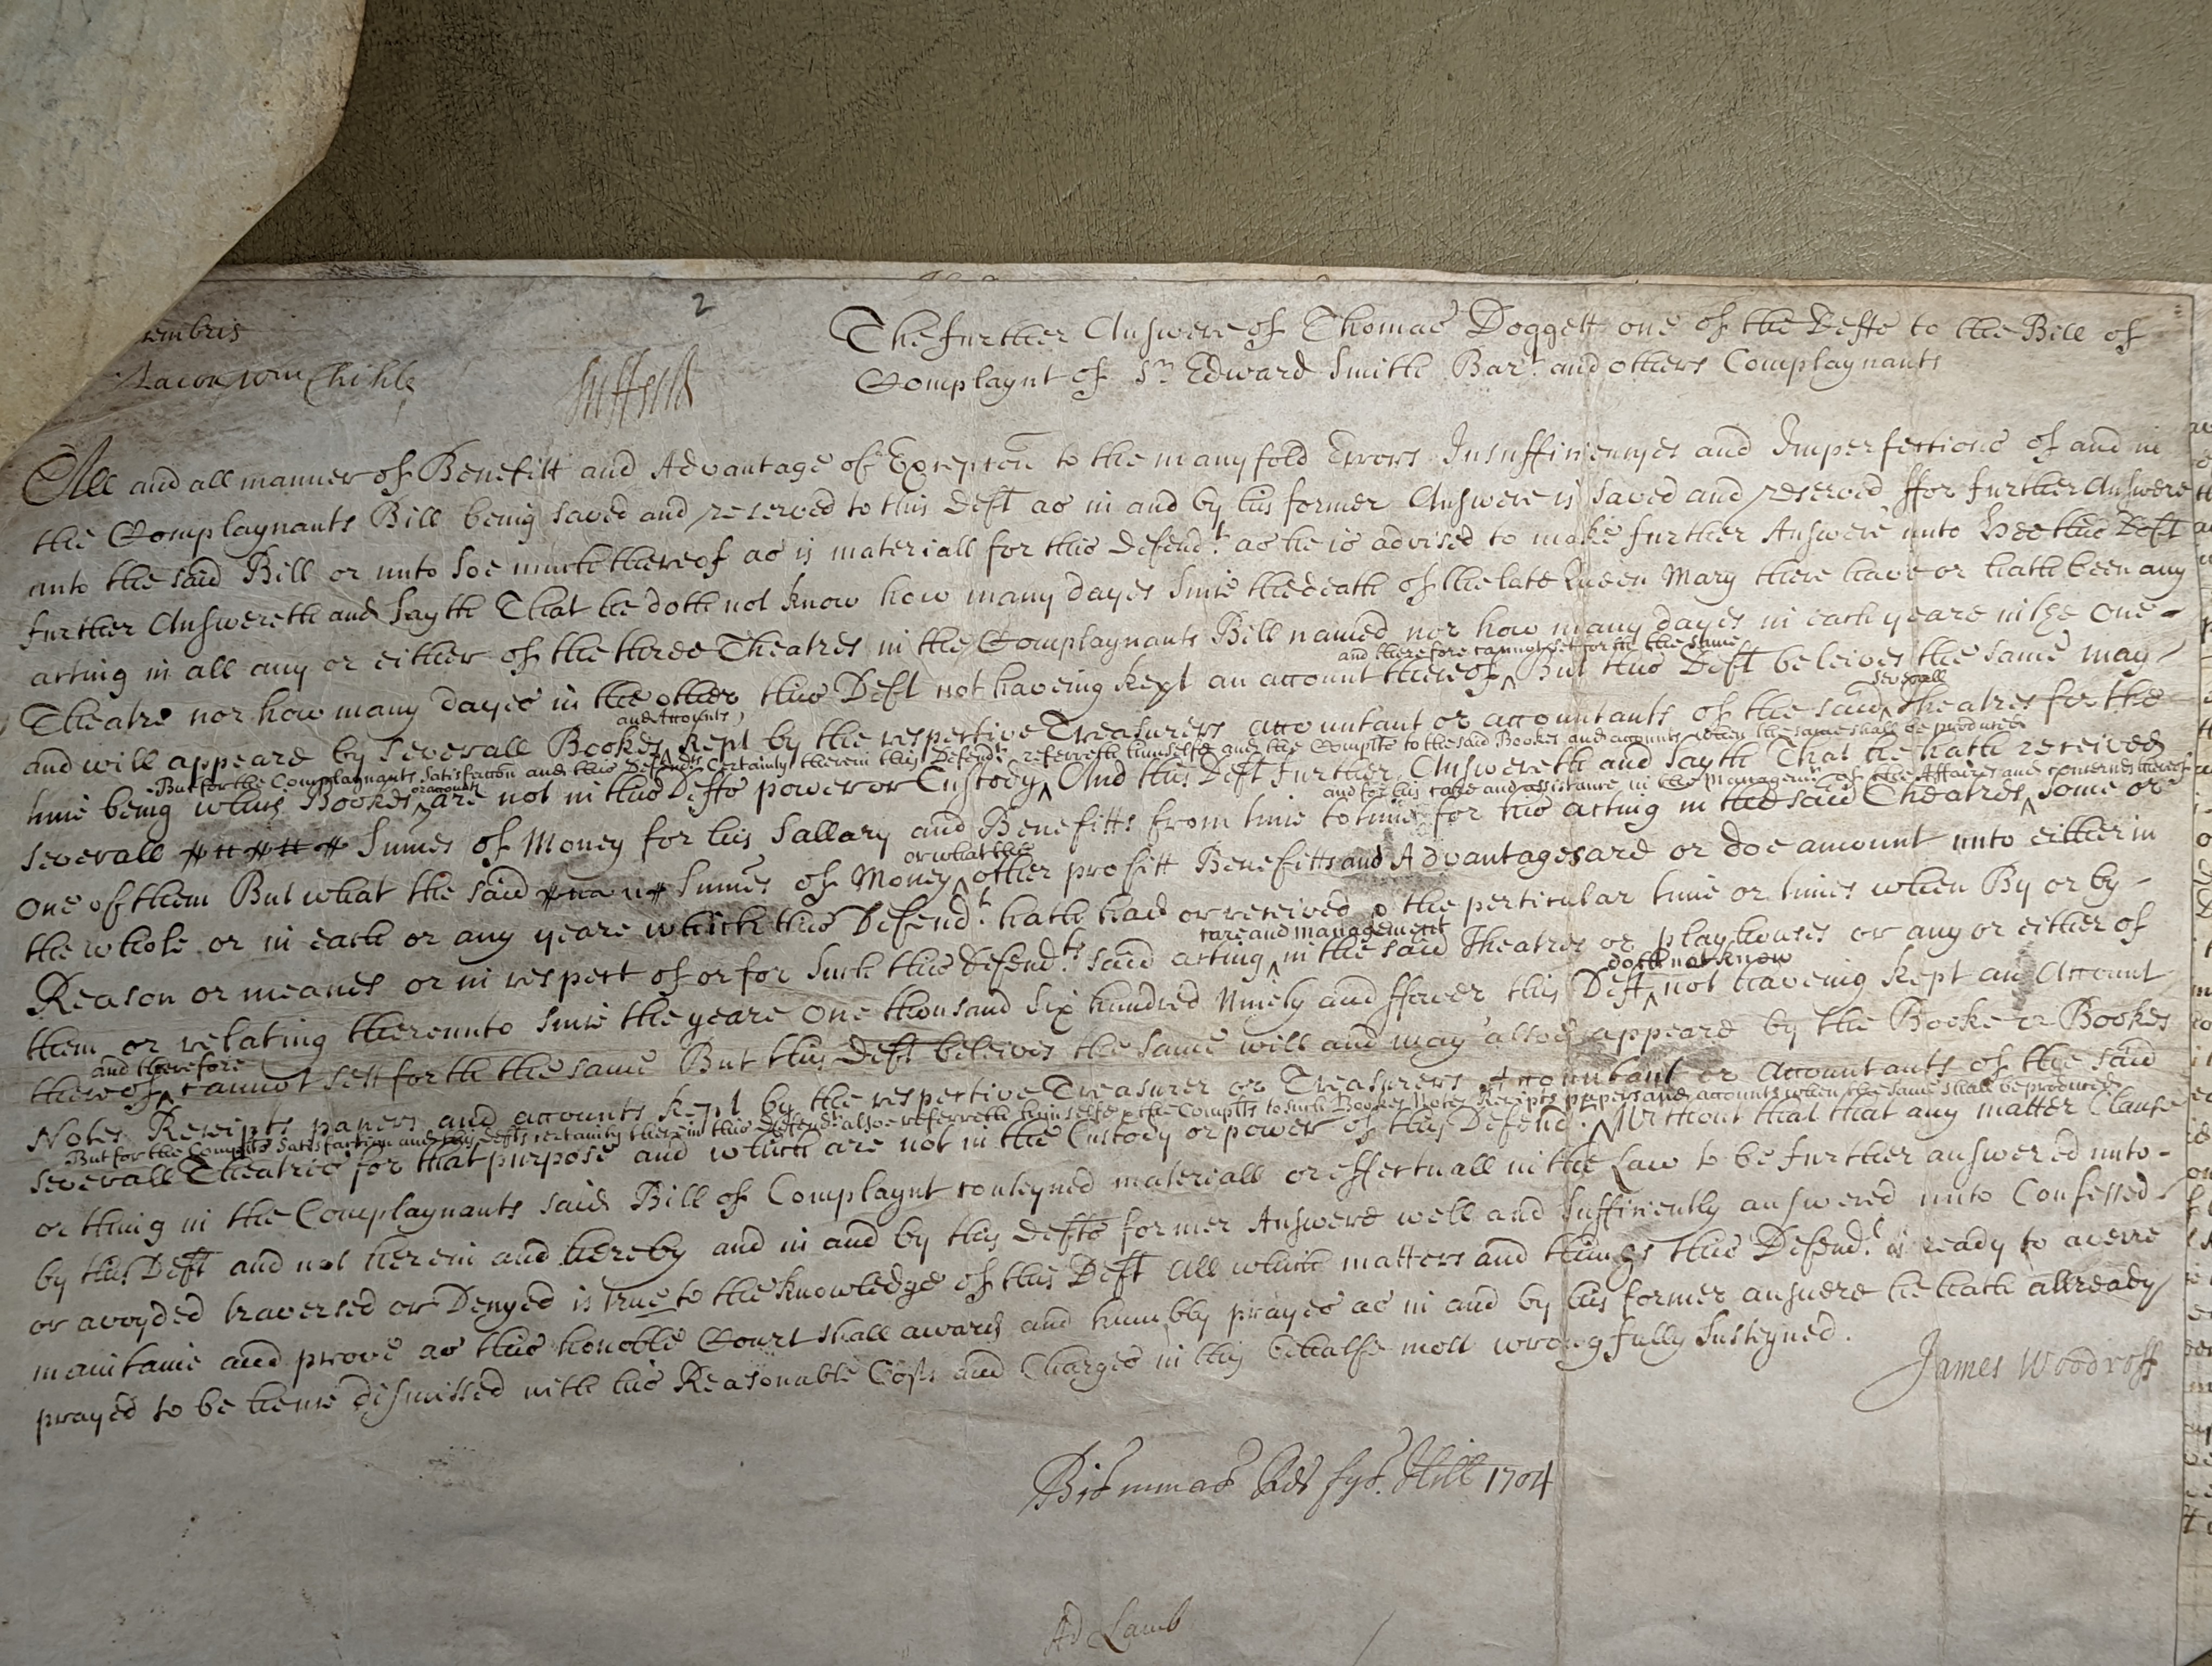 2
embris
The further Answere of Thomas Doggett one of the Defts to the Bill of
Complaynt of Sr Edward Smith Bart and others Complaynants
All and all manner of Benefitt and Advantage of Excepcon to the manyfold Errors Insufficiencyes and Imperfections of and in
the Complaynants Bill being saved and reserved to this Deft as in and by his former Answere is saved and reserved ffor further Answere
unto the said Bill or unto soe much thereof as is materiall for this Defendt as he is advised to make further Answere unto Hee this Deft
further Answereth and Sayth That he doth not know how many dayes since the death of the late Queen Mary there have or hath been any
acting in all any or either of the three Theatres in the Complaynants Bill named nor how many dayes in each yeare in the One
and therefore cannot set forth the same
Theatre nor how many dayes in the other this Deft not haveing kept an account thereof But this Deft beleives the same may
and Accounts severall
and will appeare by severall Bookes kept by the respective Treasurers accountant or accountants of the said Theatres for the
But for the Complaynants Satisfaction and this Defendts Certainty therein this Defendt referreth himselfe and the Complts to the said Bookes and accounts when the same shall be produced
time being which Bookes or accounts are not in this Defts power or Custody And this Deft further Answereth and Sayth That he hath received
and for his care and assistance in the Managemt of the Affaires and concernes thereof
severall Sumes of Money for his Sallary and Benefitts from time to time for his acting in the said Theatres some or
or what the
One of them But what the said Sumes of Money other profitt Benefitts and Advantages are or doe amount unto either in
the whole or in each or any yeare which this Defendt hath had or received or the perticular time or times when By or by
care and management
Reason or meanes or in respect of or for such this Defendts said acting in the said Theatres or playhouses or any or either of
doth not know
them or relating thereunto since the yeare One thousand Six hundred Ninety and ffower this Deft not haveing kept an Account
and therefore
thereof cannot sett forth the same But this Deft beleives the same will and may alsoe appeare by the Booke or Bookes
Notes Receipts papers and accounts kept by the respective Treasurer or Treasurers Accountant or Accountants of the said
But for the Complts Satisfaction and this Defts certainty therein this Defendt alsoe referreth himselfe & the Complts to such Bookes Notes Receipts papers and accounts when the same shall be produced
severall Theatres for that purpose and which are not in the Custody or power of this Defendt Without that that any matter Clause
or thing in the Complaynants said Bill of Complaynt conteyned materiall or effectuall in the Law to be further answered unto
by this Deft and not herein and hereby and in and by this Defts former Answere well and sufficiently answered unto Confessed
or avoyded traversed or Denyed is true to the knowledge of this Deft All which matters and things this Defendt is ready to averre
maintaine and prove as this honoble Court shall award and humbly prayes as in and by his former answere he hath allready
prayed to be hence dismissed with his Reasonable Costs and Charges in this behalfe most wrongfully susteyned.
James Woodroff
Hill 1704
Ad Lamb